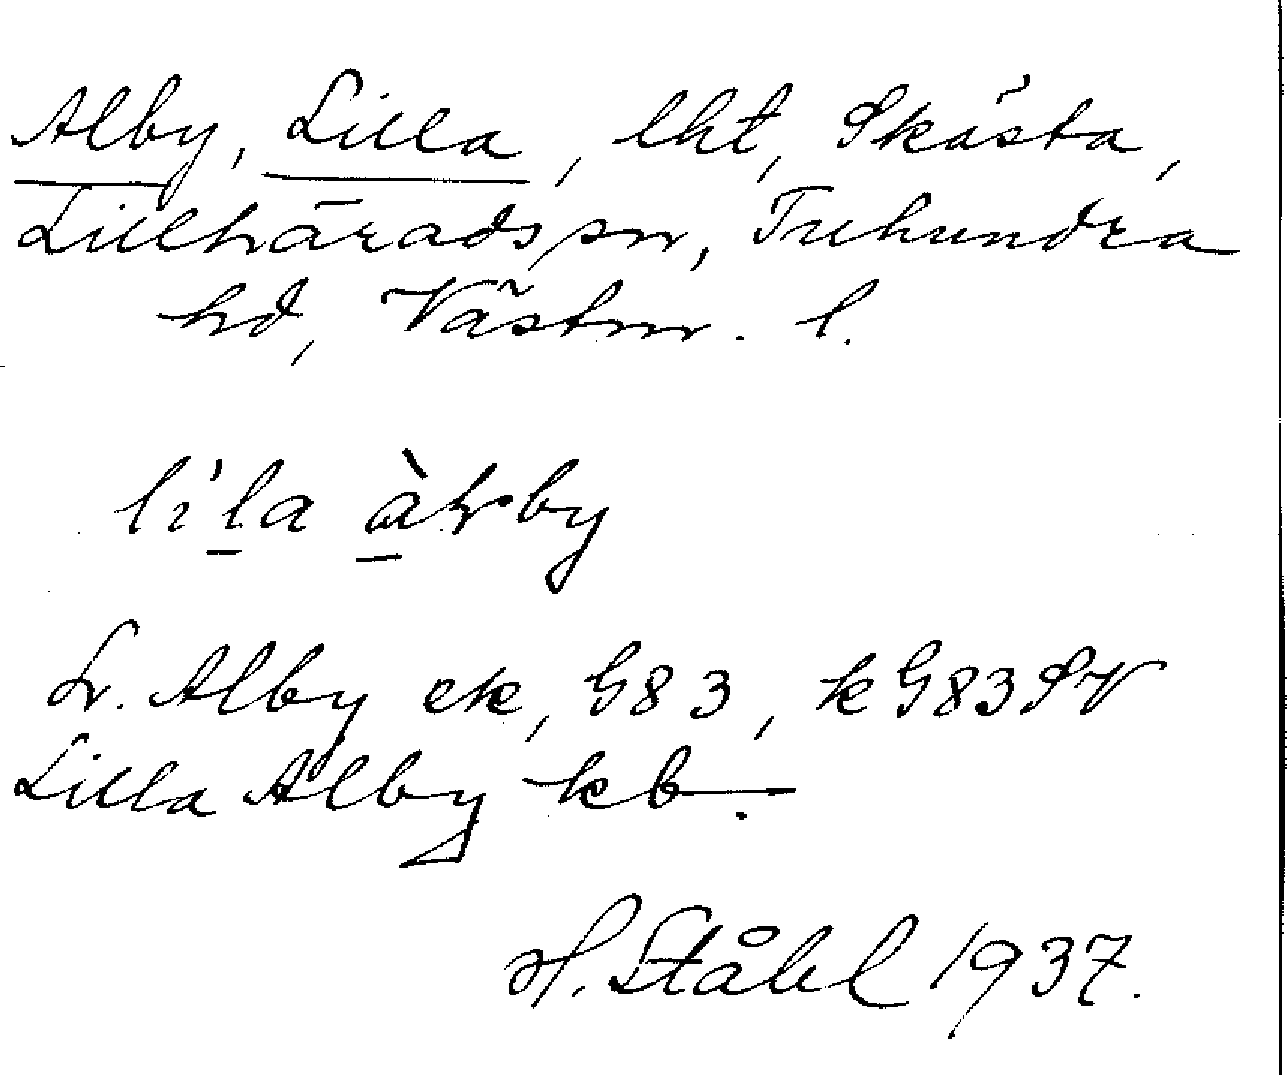 Alby, Lilla, lht, Skästa,
Lillhärads sn, Tuhundra
hd, Västm. l.
lila
L. Alby ek, G83, k G83SV
Lilla Alby kb.
H. Ståhl 1937.